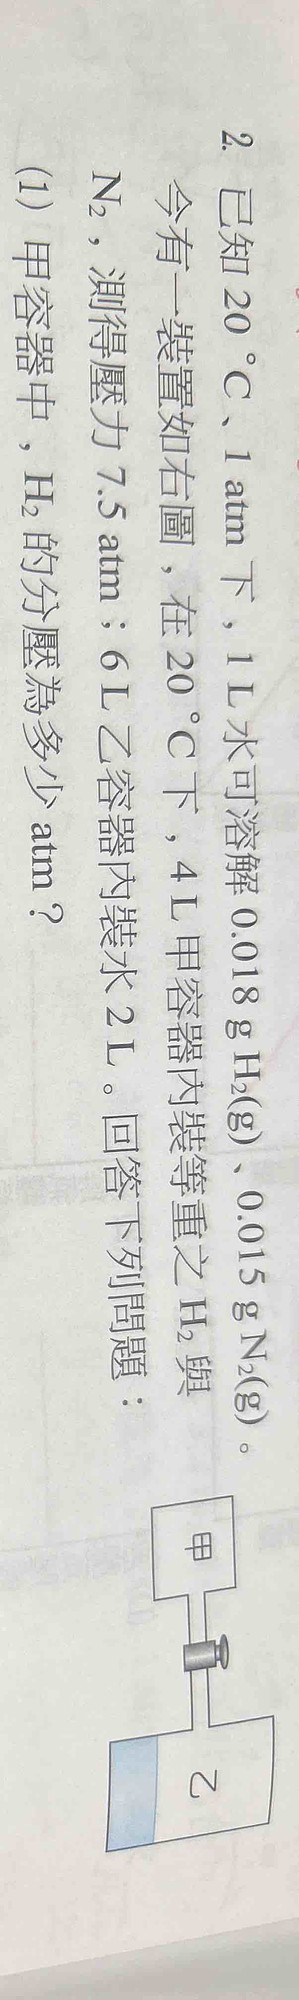 2. 已知 20 °C、1 atm 下，1 L 水可溶解 0.018 g H₂(g)、0.015 g N₂(g)。
今有一裝置如右圖，在 20 °C 下，4 L 甲容器內裝等重之 H₂ 與
N₂，測得壓力 7.5 atm；6 L 乙容器內裝水 2 L。回答下列問題：
(1) 甲容器中，H₂ 的分壓為多少 atm？
甲
乙